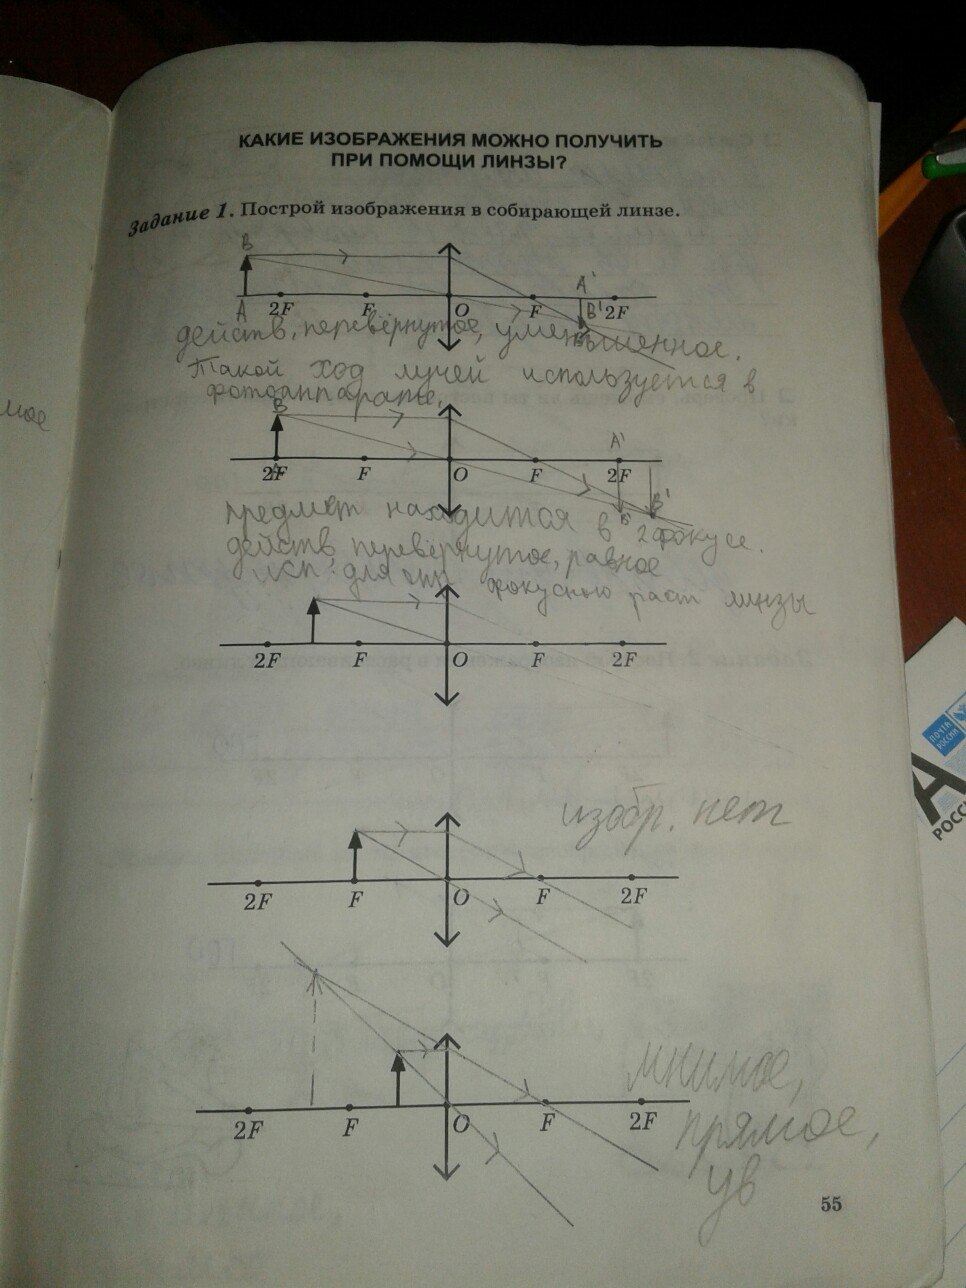 КАКИЕ ИЗОБРАЖЕНИЯ МОЖНО ПОЛУЧИТЬ
ПРИ ПОМОЩИ ЛИНЗЫ?
Задание 1. Построй изображения в собирающей линзе.
B
A 2F F O F A' B' 2F
действ, перевёрнутое, уменьшенное.
Такой ход лучей используется в
фотоаппарате.
B
A'
2F F O F 2F
B'
предмет находится в 2 фокусе.
действ перевёрнутое, равное
исп. для опр фокусного раст линзы
2F F O F 2F
изобр. нет
2F F O F 2F
мнимое,
2F F O F 2F
прямое,
ув
55
мое
ПОЧТА
РОССИИ
А
РОСС